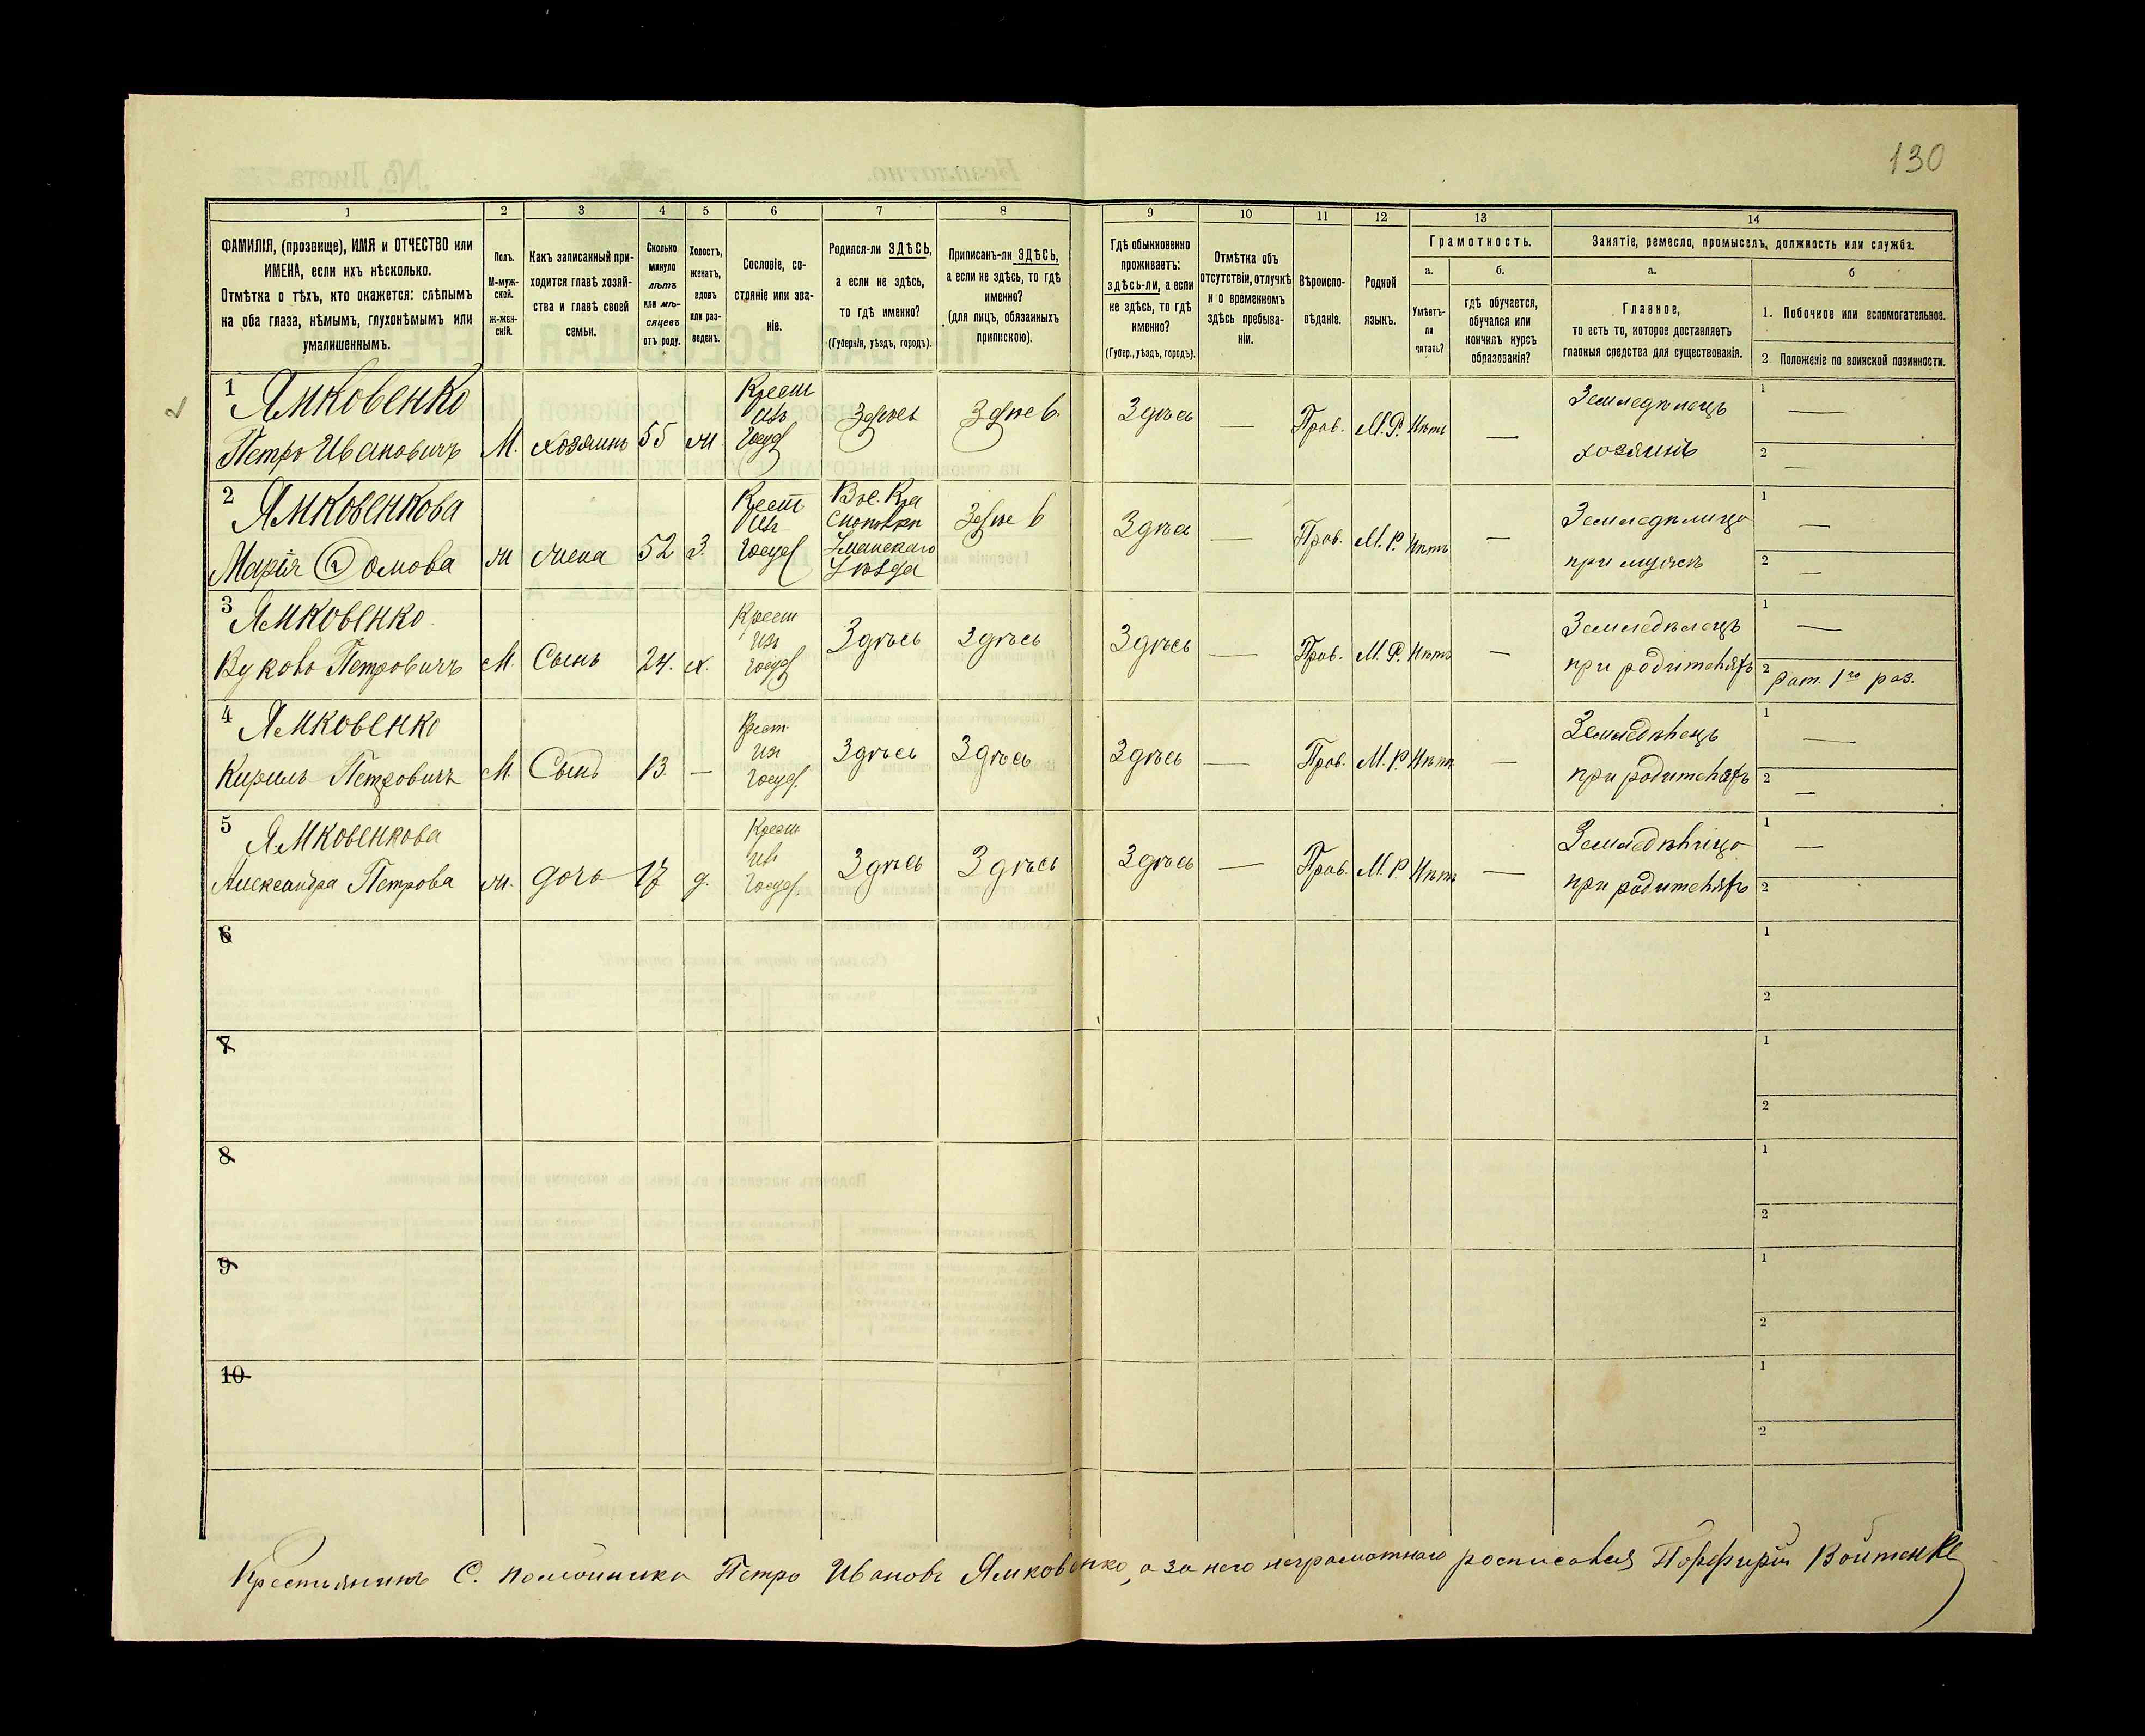 130
1
2
3
4
5
6
7
8
9
10
11
12
13
14
ФАМИЛІЯ, (прозвище), ИМЯ и ОТЧЕСТВО или
ИМЕНА, если ихъ нѣсколько.
Отмѣтка о тѣхъ, кто окажется: слѣпымъ
на оба глаза, нѣмымъ, глухонѣмымъ или
умалишеннымъ.
Полъ.
М-муж-
ской.
Ж-жен-
скій.
Какъ записанный при-
ходится главѣ хозяй-
ства и главѣ своей
семьи.
Сколько
минуло
лѣтъ
или мѣ-
сяцевъ
отъ роду.
Холостъ,
женатъ,
вдовъ
или раз-
веденъ.
Сословіе, со-
стояніе или зва-
ніе.
Родился-ли ЗДѢСЬ,
а если не здѣсь,
то гдѣ именно?
(Губернія, уѣздъ, городъ).
Приписанъ-ли ЗДѢСЬ,
а если не здѣсь, то гдѣ
именно?
(для лицъ, обязанныхъ
припискою).
Гдѣ обыкновенно
проживаетъ:
здѣсь-ли, а если
не здѣсь, то гдѣ
именно?
(Губер., уѣздъ, городъ).
Отмѣтка объ
отсутствіи, отлучкѣ
и о временномъ
здѣсь пребыва-
ніи.
Вѣроиспо-
вѣданіе.
Родной
языкъ.
Грамотность.
а.
Умѣетъ-
ли
читать?
б.
гдѣ обучается,
обучался или
кончилъ курсъ
образованія?
Занятіе, ремесло, промыселъ, должность или служба.
а.
Главное,
то есть то, которое доставляетъ
главныя средства для существованія.
б
1. Побочное или вспомогательное.
2 Положеніе по воинской повинности.
1 Ямковенко
Петро Ивановичъ М. хозяинъ 55 ж Крест изъ Госуд Здѣсь Здѣсь Здѣсь — Прав. М.Р. Нѣтъ — Земледѣлецъ хозяинъ 1 — 2 —
2 Ямковенкова
Марія Ѳомова ж жена 52 З. Крест изъ Госуд Умaнскаго Уѣзда Здѣсь Здѣсь — Прав. М.Р. Нѣтъ — при мужѣ 1 — 2 —
3 Ямковенко
Петровичъ М. Сынъ 24. х. Крест изъ Госуд Здѣсь Здѣсь Здѣсь — Прав. М.Р. Нѣтъ — Земледѣлецъ при родителяхъ 1 — 2 рат. 1го раз.
4 Ямковенко
Кирилъ Петровичъ М. Сынъ 13. — Крест изъ Госуд. Здѣсь Здѣсь Здѣсь — Прав. М.Р. Нѣтъ — Земледѣлецъ при родителяхъ 1 — 2 —
5 Ямковенкова
Александра Петрова ж. дочь 17 д. Крест изъ Госуд. Здѣсь Здѣсь Здѣсь — Прав. М.Р. Нѣтъ — при родителяхъ 1 — 2
6 1 2
7 1 2
8 1 2
9 1 2
10 1 2
Крестьянинъ С. Петро Ивановъ Ямковенко, а за него неграмотнаго росписался Порфирій Войтенко